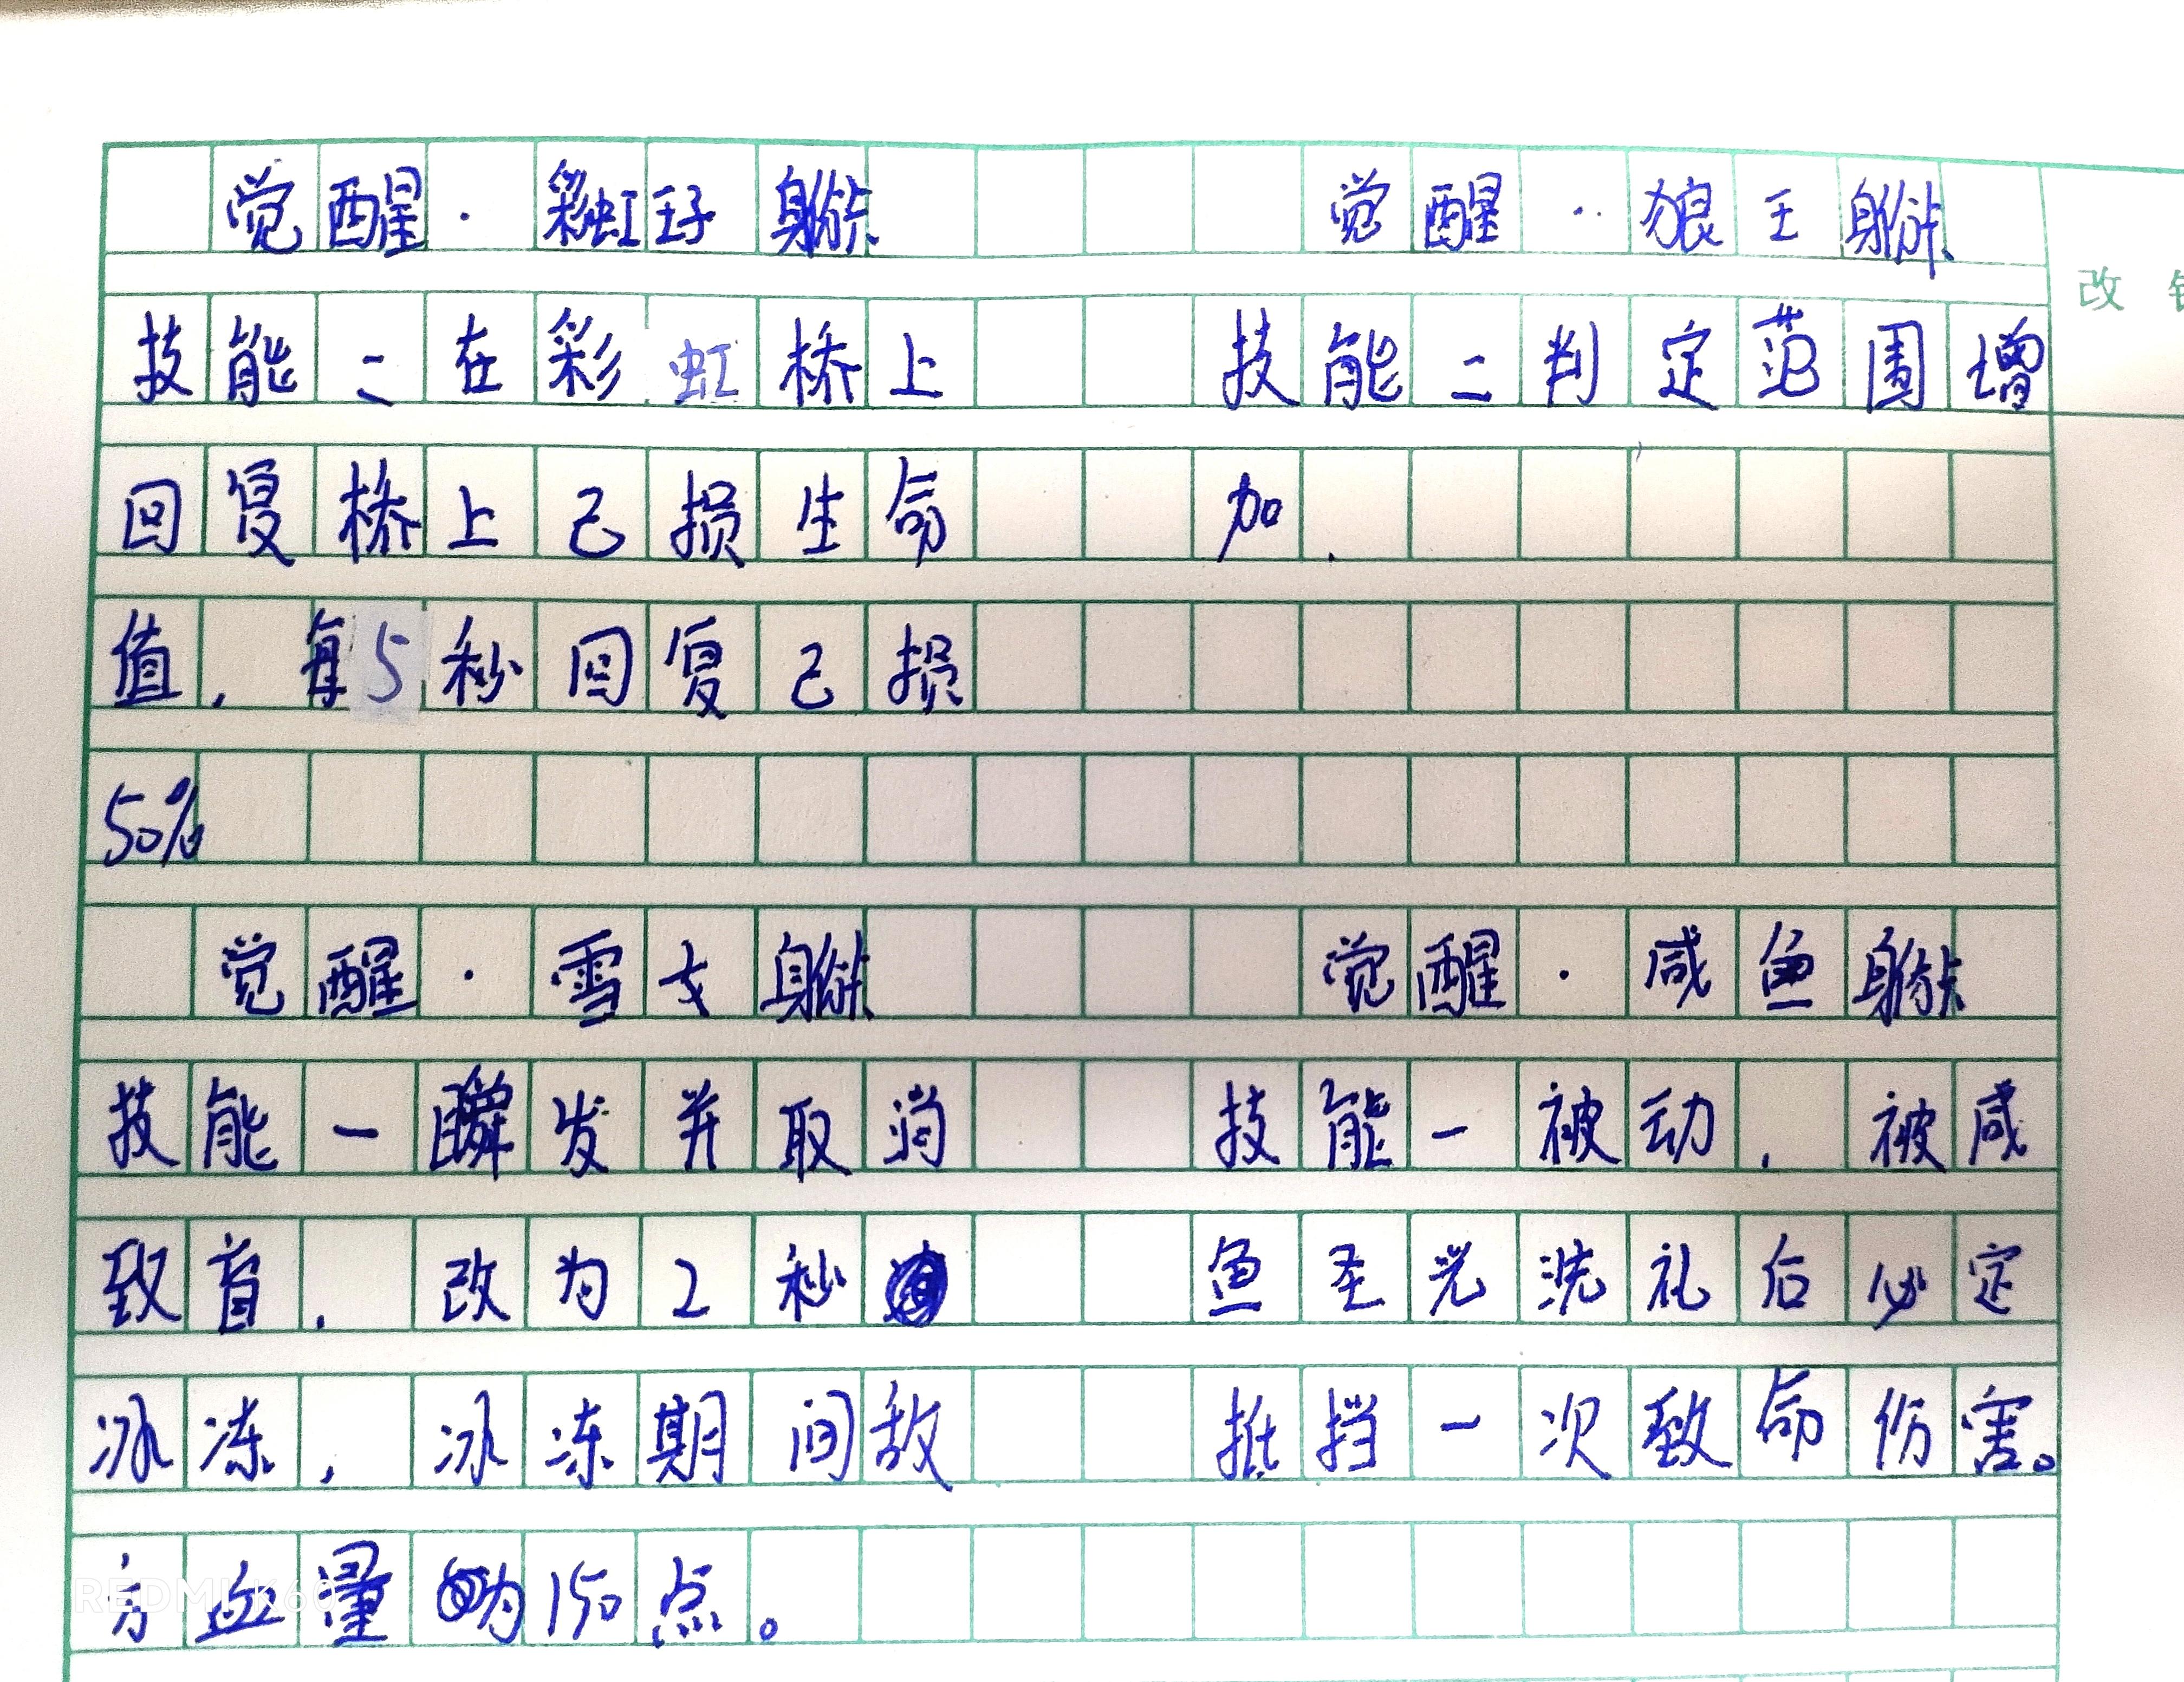 觉醒·彩虹王子身份卡
技能二在彩虹桥上
回复桥上已损生命
值，每5秒回复已损
50%
觉醒··狼王身份卡
技能二判定范围增
加.
觉醒·雪女身份卡
技能一瞬发并取消
致盲，改为2秒
冰冻，冰冻期间敌
方血量为150点。
觉醒·咸鱼身份卡
技能一被动，被咸
鱼圣光洗礼后必定
抵挡一次致命伤害。
改
REDMI K60